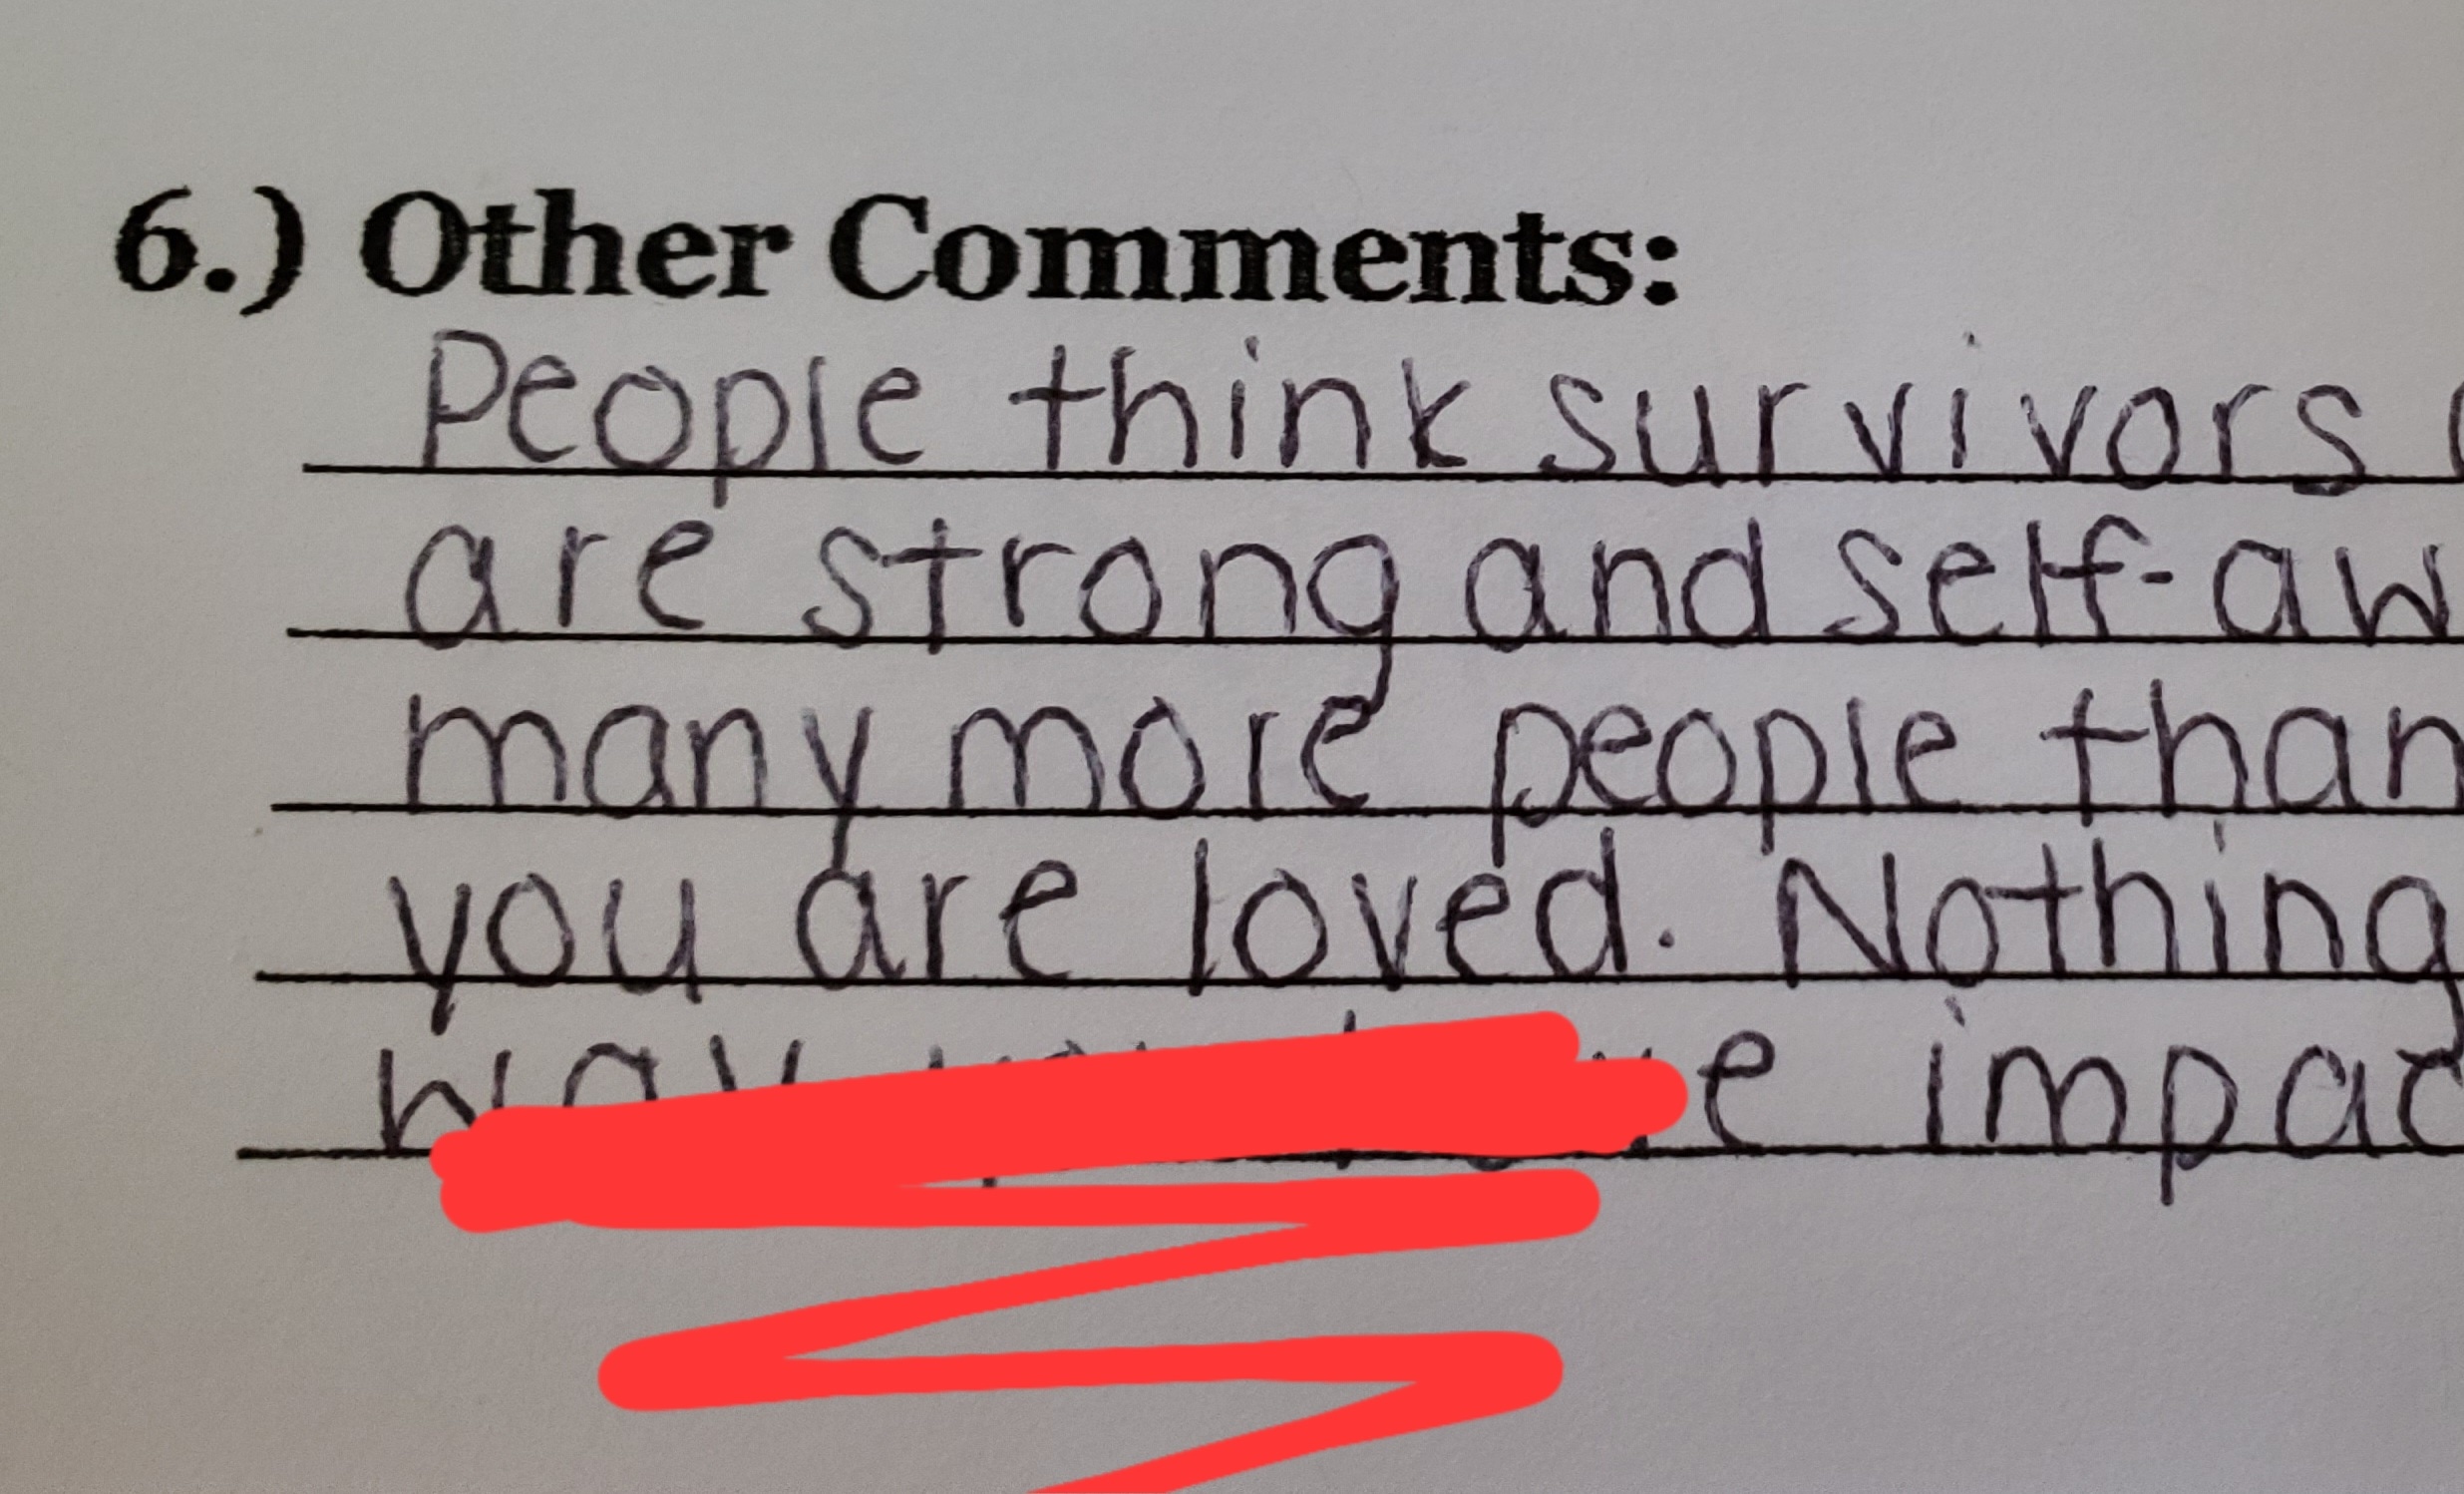 6.) Other Comments:
People think survivors
are strong and self-aw
many more people than
you are loved. Nothing
way impac